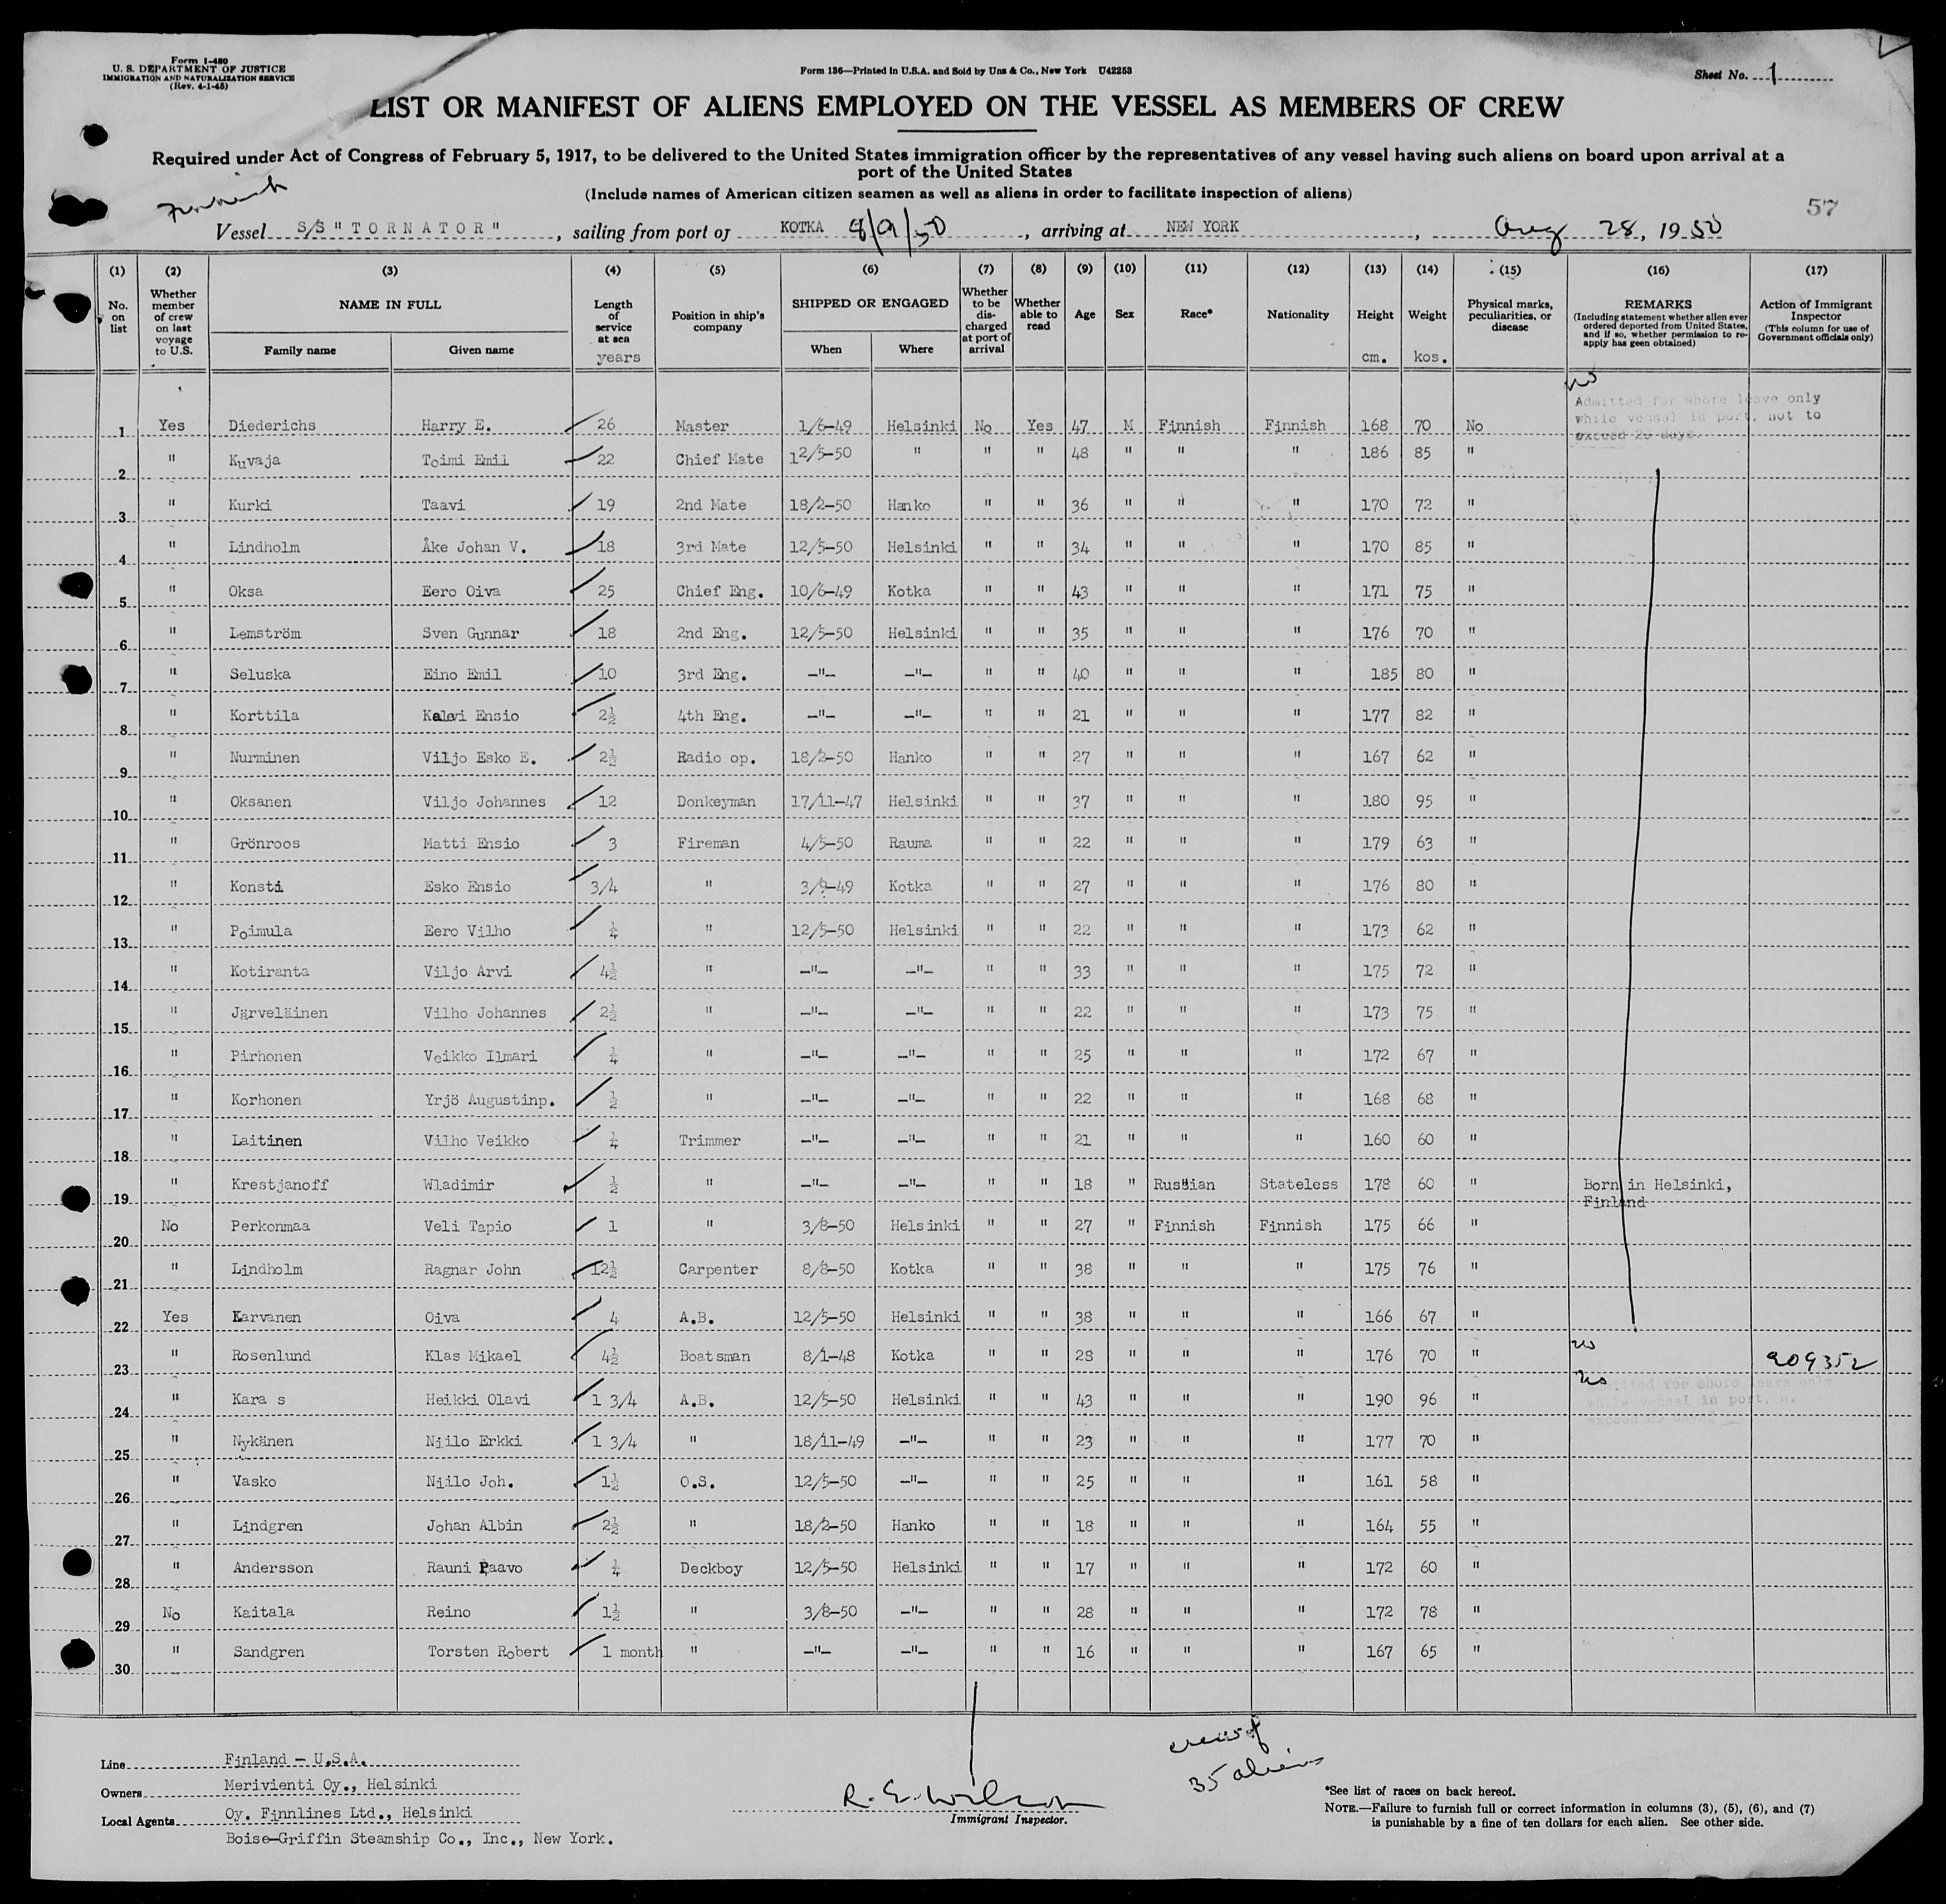 Form I-480
U. S. DEPARTMENT OF JUSTICE
IMMIGRATION AND NATURALIZATION SERVICE
(Rev. 4-1-45)
Form 136—Printed in U.S.A. and Sold by Unz & Co., New York U42253
Sheet No. 1
LIST OR MANIFEST OF ALIENS EMPLOYED ON THE VESSEL AS MEMBERS OF CREW
Required under Act of Congress of February 5, 1917, to be delivered to the United States immigration officer by the representatives of any vessel having such aliens on board upon arrival at a
port of the United States
(Include names of American citizen seamen as well as aliens in order to facilitate inspection of aliens)
57
Vessel S/S "TORNATOR", sailing from port of KOTKA 8/9/50, arriving at NEW YORK, Aug 28, 1950
(1) (2) (3) (4) (5) (6) (7) (8) (9) (10) (11) (12) (13) (14) (15) (16) (17)
No. on list
Whether member of crew on last voyage to U.S.
NAME IN FULL
Family name
Given name
Length of service at sea years
Position in ship's company
SHIPPED OR ENGAGED
When
Where
Whether to be discharged at port of arrival
Whether able to read
Age
Sex
Race*
Nationality
Height cm.
Weight kos.
Physical marks, peculiarities, or disease
REMARKS
(Including statement whether alien ever ordered deported from United States, and if so, whether permission to re-apply has geen obtained)
Action of Immigrant Inspector
(This column for use of Government officials only)
no
Admitted for shore leave only
while vessel in port, not to
exceed 29 days.
1 Yes Diederichs Harry E. 26 Master 1/6-49 Helsinki No Yes 47 M Finnish Finnish 168 70 No
2 " Kuvaja Toimi Emil 22 Chief Mate 12/5-50 " " " 48 " " " 186 85 "
3 " Kurki Taavi 19 2nd Mate 18/2-50 Hanko " " 36 " " " 170 72 "
4 " Lindholm Åke Johan V. 18 3rd Mate 12/5-50 Helsinki " " 34 " " " 170 85 "
5 " Oksa Eero Oiva 25 Chief Eng. 10/6-49 Kotka " " 43 " " " 171 75 "
6 " Lemström Sven Gunnar 18 2nd Eng. 12/5-50 Helsinki " " 35 " " " 176 70 "
7 " Seluska Eino Emil 10 3rd Eng. -"- -"- " " 40 " " " 185 80 "
8 " Korttila Kalevi Ensio 2½ 4th Eng. -"- -"- " " 21 " " " 177 82 "
9 " Nurminen Viljo Esko E. 2½ Radio op. 18/2-50 Hanko " " 27 " " " 167 62 "
10 " Oksanen Viljo Johannes 12 Donkeyman 17/11-47 Helsinki " " 37 " " " 180 95 "
11 " Grönroos Matti Ensio 3 Fireman 4/5-50 Rauma " " 22 " " " 179 63 "
12 " Konsti Esko Ensio 3/4 " 3/9-49 Kotka " " 27 " " " 176 80 "
13 " Poimula Eero Vilho ¼ " 12/5-50 Helsinki " " 22 " " " 173 62 "
14 " Kotiranta Viljo Arvi 4½ " -"- -"- " " 33 " " " 175 72 "
15 " Järveläinen Vilho Johannes 2½ " -"- -"- " " 22 " " " 173 75 "
16 " Pirhonen Veikko Ilmari ¼ " -"- -"- " " 25 " " " 172 67 "
17 " Korhonen Yrjö Augustinp. ½ " -"- -"- " " 22 " " " 168 68 "
18 " Laitinen Vilho Veikko ¼ Trimmer -"- -"- " " 21 " " " 160 60 "
19 " Krestjanoff Wladimir ½ " -"- -"- " " 18 " Russian Stateless 178 60 " Born in Helsinki,
Finland
20 No Perkonmaa Veli Tapio 1 " 3/8-50 Helsinki " " 27 " Finnish Finnish 175 66 "
21 " Lindholm Ragnar John 12½ Carpenter 8/8-50 Kotka " " 38 " " " 175 76 "
22 Yes Karvanen Oiva 4 A.B. 12/5-50 Helsinki " " 38 " " " 166 67 "
23 " Rosenlund Klas Mikael 4½ Boatsman 8/1-48 Kotka " " 28 " " " 176 70 " no 909352
24 " Kara s Heikki Olavi 1 3/4 A.B. 12/5-50 Helsinki " " 43 " " " 190 96 " no
Admitted for shore leave only
while vessel in port,
25 " Nykänen Niilo Erkki 1 3/4 " 18/11-49 -"- " " 23 " " " 177 70 "
26 " Vasko Niilo Joh. 1½ O.S. 12/5-50 -"- " " 25 " " " 161 58 "
27 " Lindgren Johan Albin 2½ " 18/2-50 Hanko " " 18 " " " 164 55 "
28 " Andersson Rauni Paavo ¼ Deckboy 12/5-50 Helsinki " " 17 " " " 172 60 "
29 No Kaitala Reino 1½ " 3/8-50 -"- " " 28 " " " 172 78 "
30 " Sandgren Torsten Robert 1 month " -"- -"- " " 16 " " " 167 65 "
Line Finland - U.S.A.
Owners Merivienti Oy., Helsinki
Local Agents Oy. Finnlines Ltd., Helsinki
Boise-Griffin Steamship Co., Inc., New York.
R. E. Wilson
Immigrant Inspector.
crew of
35 aliens
*See list of races on back hereof.
NOTE.—Failure to furnish full or correct information in columns (3), (5), (6), and (7)
is punishable by a fine of ten dollars for each alien. See other side.